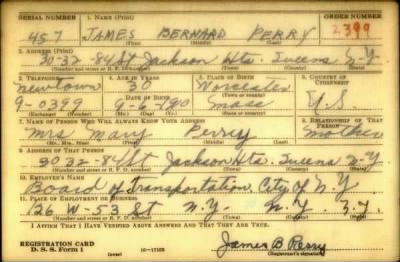 SERIAL NUMBER 1. NAME (Print) ORDER NUMBER
457 JAMES BERNARD PERRY 2399
(First) (Middle) (Last)
2. ADDRESS (Print)
30-32-84 St Jackson Hts. Queens N-Y-
(Number and street or R. F. D. number) (Town) (County) (State)
3. TELEPHONE 4. AGE IN YEARS 5. PLACE OF BIRTH 6. COUNTRY OF CITIZENSHIP
Newtown 30 Worcester
DATE OF BIRTH (Town or county)
9-0399 9-6-90 Mass U.S.
(Exchange) (Number) (Mo.) (Day) (Yr.) (State or country)
7. NAME OF PERSON WHO WILL ALWAYS KNOW YOUR ADDRESS 8. RELATIONSHIP OF THAT PERSON
Mrs Mary Perry mother
(Mr., Mrs., Miss) (First) (Middle) (Last)
9. ADDRESS OF THAT PERSON
3032-84 St Jackson Hts. Queens N-Y
(Number and street or R. F. D. number) (Town) (County) (State)
10. EMPLOYER'S NAME
Board of Transportation, City of N.Y
11. PLACE OF EMPLOYMENT OR BUSINESS
126 W-53 St N.Y. N.Y.
(Number and street or R. F. D. number) (Town) (County) (State)
I AFFIRM THAT I HAVE VERIFIED ABOVE ANSWERS AND THAT THEY ARE TRUE.
REGISTRATION CARD
D. S. S. Form 1 (over) 16-17105
James B Perry
(Registrant's signature)